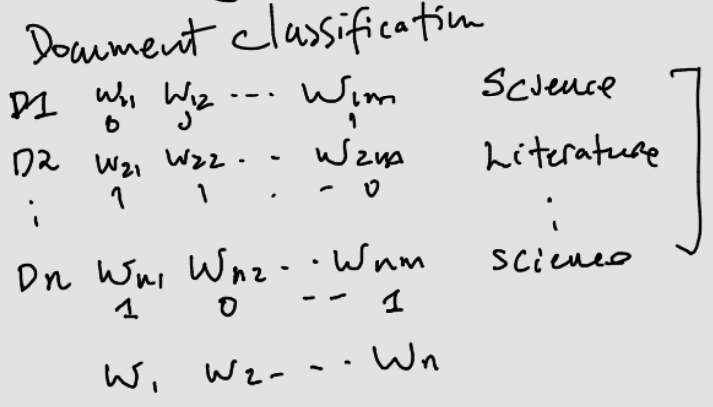 Document classification
D1 W11 W12 --- W1m Science
0 1
D2 W21 W22 . - W2m Literature
1 1 . - 0
Dn Wn1 Wn2 - . Wnm Science
1 0 -- 1
W1 W2 - - . Wn